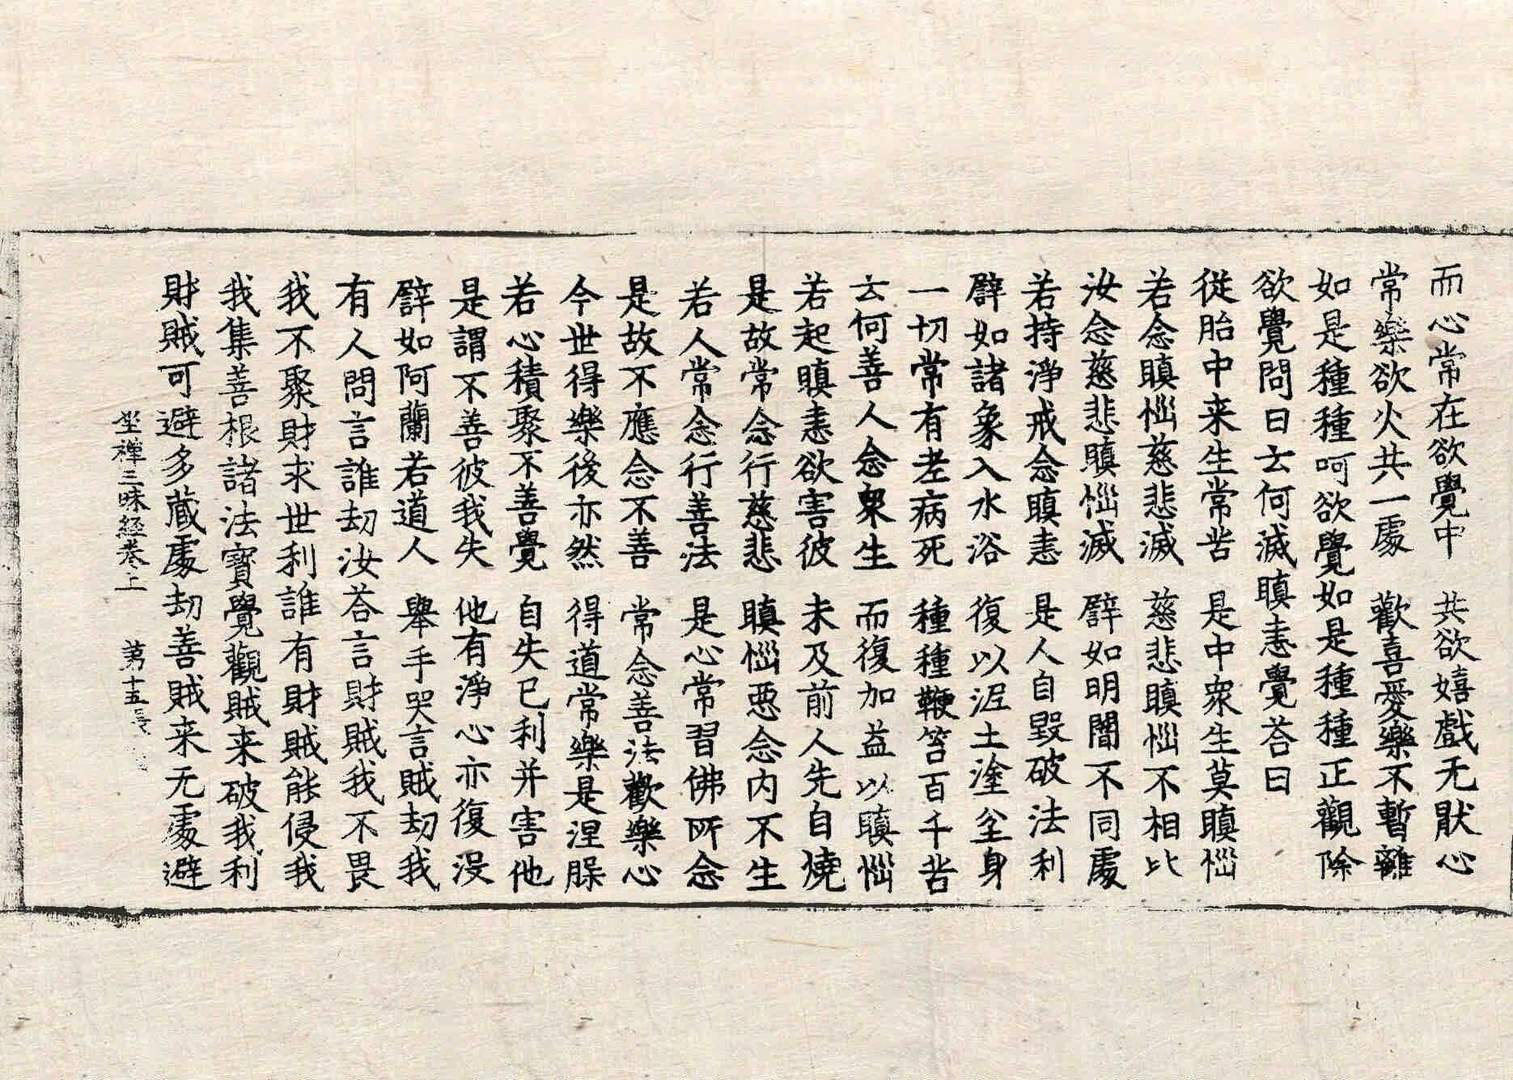 而心常在欲覺中　共欲嬉戲无猒心
常樂欲火共一處　歡喜愛樂不暫離
如是種種呵欲覺如是種種正觀除
欲覺問曰云何滅瞋恚覺荅曰
從胎中来生常苦　是中衆生莫瞋惱
若念瞋惱慈悲滅　慈悲瞋惱不相比
汝念慈悲瞋惱滅　譬如明闇不同處
若持淨戒念瞋恚　是人自毀破法利
譬如諸象入水浴　復以泥土塗坌身
一切常有老病死　種種鞭笞百千苦
云何善人念衆生　而復加益以瞋惱
若起瞋恚欲害彼　未及前人先自燒
是故常念行慈悲　瞋惱惡念內不生
若人常念行善法　是心常習佛所念
是故不應念不善　常念善法歡樂心
今世得樂後亦然　得道常樂是涅槃
若心積聚不善覺　自失己利并害他
是謂不善彼我失　他有淨心亦復沒
譬如阿蘭若道人　舉手哭言賊劫我
有人問言誰劫汝荅言財賊我不畏
我不聚財求世利誰有財賊能侵我
我集善根諸法寶覺觀賊来破我利
財賊可避多藏處劫善賊来无處避
坐禪三昧經卷上　第十五長